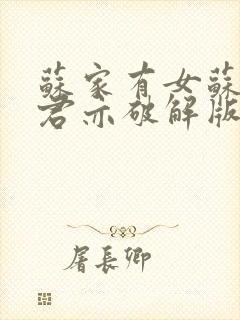 蘇家有女蘇
君亦破解版
屠長卿